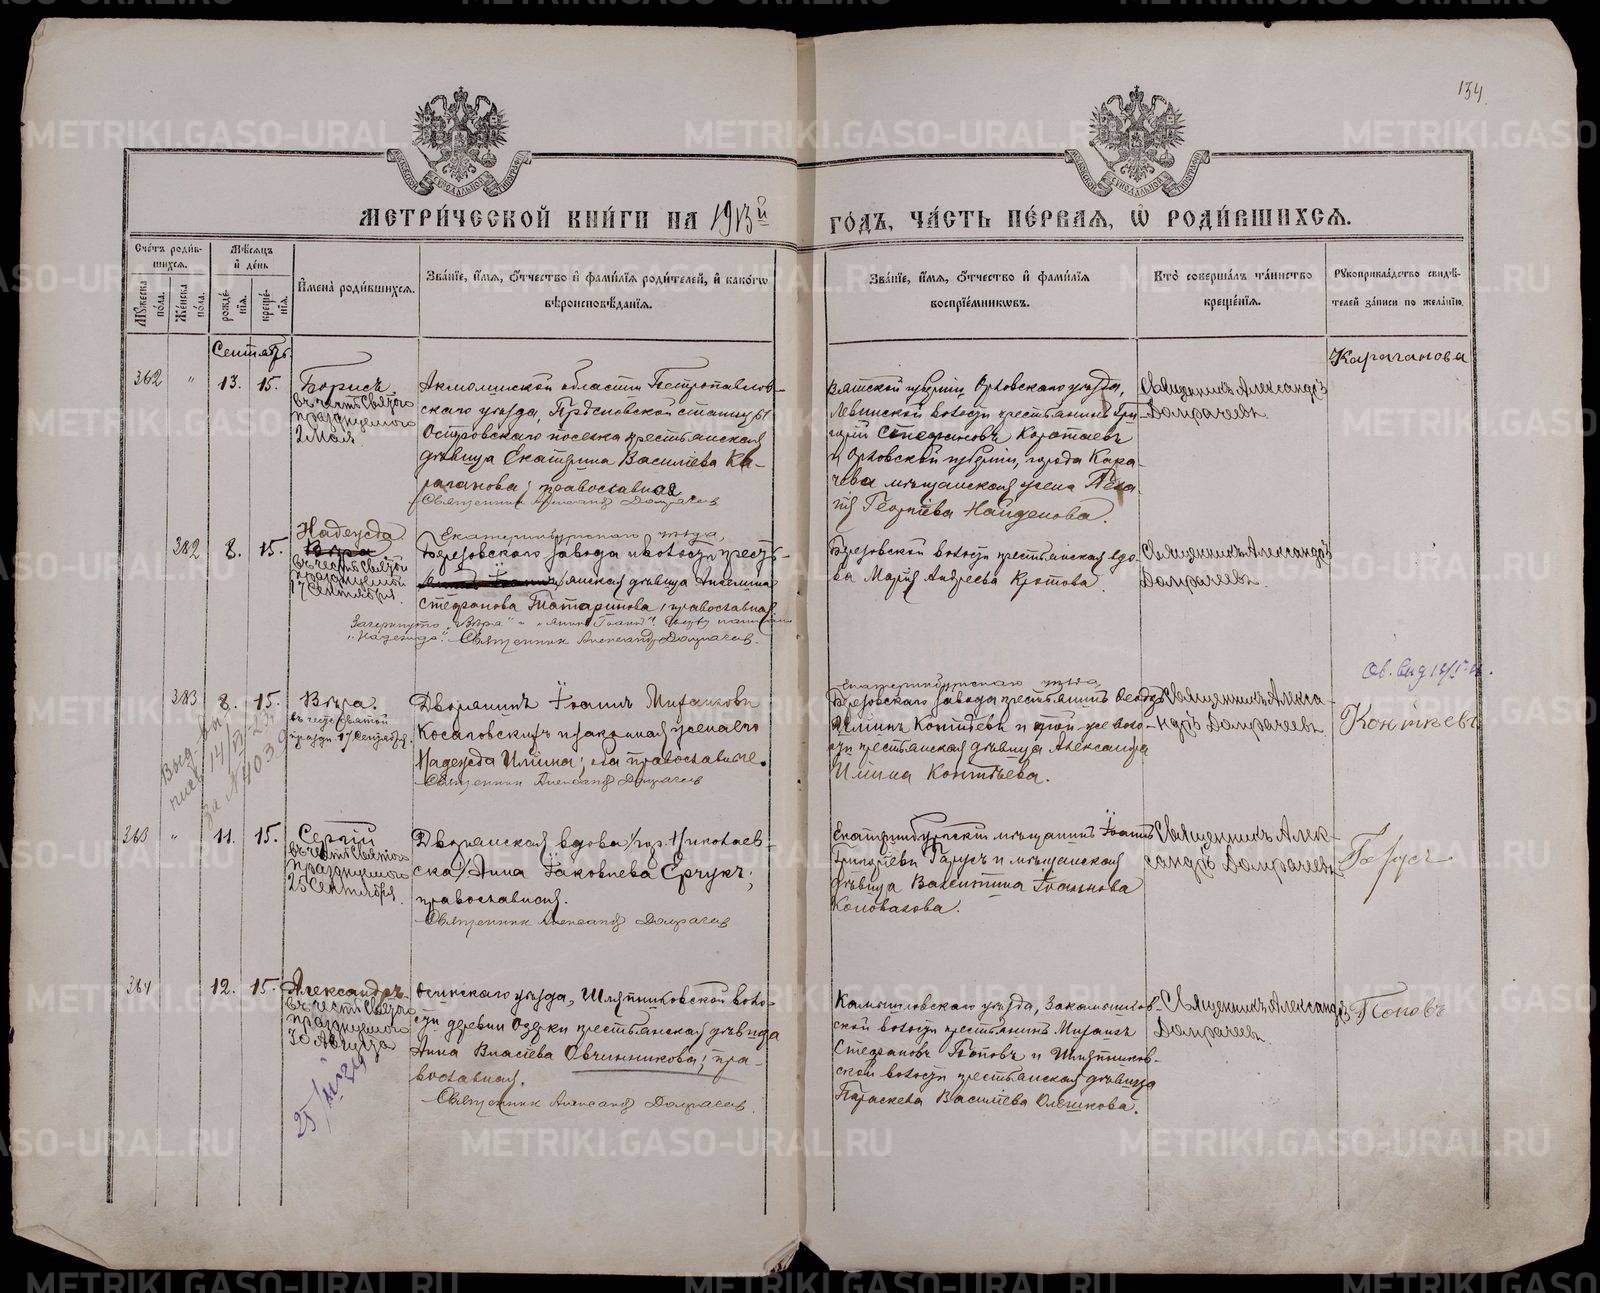 134.
МЕТРИ́ЧЕСКОЙ КНИ́ГИ НА 1913й ГО́ДЪ, ЧА́СТЬ ПЕ́РВАЯ, Ѡ҆ РОДИ́ВШИХСЯ.
Сче́тъ роди́в-
шихся.
Му́жеска по́ла.
Же́нска по́ла.
Мѣ́сяцъ
и҆ де́нь
рожде́-
нія.
креще́-
нія.
И҆мена̀ роди́вшихся.
Зва́нїе, и҆́мя, ѻ҆́тчество и҆ фами́лїя роди́телей, и҆ како́гѡ
вѣроисповѣ́данїя.
Зва́нїе, и҆́мя, ѻ҆́тчество и҆ фами́лїя
воспрїе́мниковъ.
Кто̀ соверша́лъ та́инство
креще́нїя.
Рукоприкла́дство свидѣ́-
телей за́писи по жела́нїю.
Сентябрь
Караганова
362 " 13. 15.
Борисъ
въ честь Святого
празднуемого
2 Мая
Акмолинской области Петропавлов-
скаго уѣзда, Прѣсновской станицы
Островскаго поселка крестьянская
дѣвица Екатерина Васильева Ка-
раганова; православная
Священник Александр Домрачев
Вятской губерніи, Орловскаго уѣзда,
Левинской волости крестьянинъ Гри-
горій Стефановъ Коротаевъ
и Орловской губерніи, города Кара-
чева мѣщанская жена Пела-
гія Георгіева Найденова.
Священникъ Александръ
Домрачевъ
382 8. 15.
Надежда
Вѣра
въ честь Святой
празднуемой
17 Сентября.
Екатеринбургскаго уѣзда,
Березовскаго завода и волости крест-
янская дѣвица Ангелина
Стефанова Татаринова, православная
Зачеркнуто "Вѣра"
"Надежда". Священник Александр Домрачев.
Березовской волости крестьянская вдо-
ва Марія Андреева Кротова
Священникъ Александръ
Домрачевъ.
383 8. 15.
Вѣра.
въ честь Святой
празд. 17 Сентября.
Дворянинъ Іоаннъ Михаиловъ
Косаговскихъ и законная жена его
Надежда Ильина; оба православные.
Священник Александр Домрачев
Екатеринбургскаго уѣзда
Березовскаго завода крестьянинъ Ѳеодоръ
Ильинъ Коптяевъ и той же воло-
сти крестьянская дѣвица Александра
Ильина Коптяева.
Священникъ Алекса-
ндръ Домрачевъ
Коптяевъ
363 " 11. 15.
Сергій
въ честь Святого
празднуемого
25 Сентября.
Дворянская вдова /гор. Николаев-
ска/ Анна Іаковлева Ерчукъ;
православная.
Священник Александр Домрачев
Екатеринбургскій мѣщанинъ Іоаннъ
Григорьевъ Гарусъ и мѣщанская
дѣвица Валентина Іоаннова
Коновалова.
Священникъ Алек-
сандръ Домрачевъ
Гарусъ
364 12. 15.
Александръ
въ честь Святого
празднуемого
30 Августа
Осинскаго уѣзда, Шляпниковской воло-
сти деревни Озерки крестьянская дѣвица
Анна Власьева Овчинникова; пра-
вославная.
Священник Александр Домрачев.
Камышловскаго уѣзда, Закамышлов-
ской волости крестьянинъ Михаилъ
Стефановъ Поповъ и Шляпников-
ской волости крестьянская дѣвица
Параскева Васильева Олешкова.
Священникъ Александръ
Домрачевъ.
Поповъ
METRIKI.GASO-URAL.RU